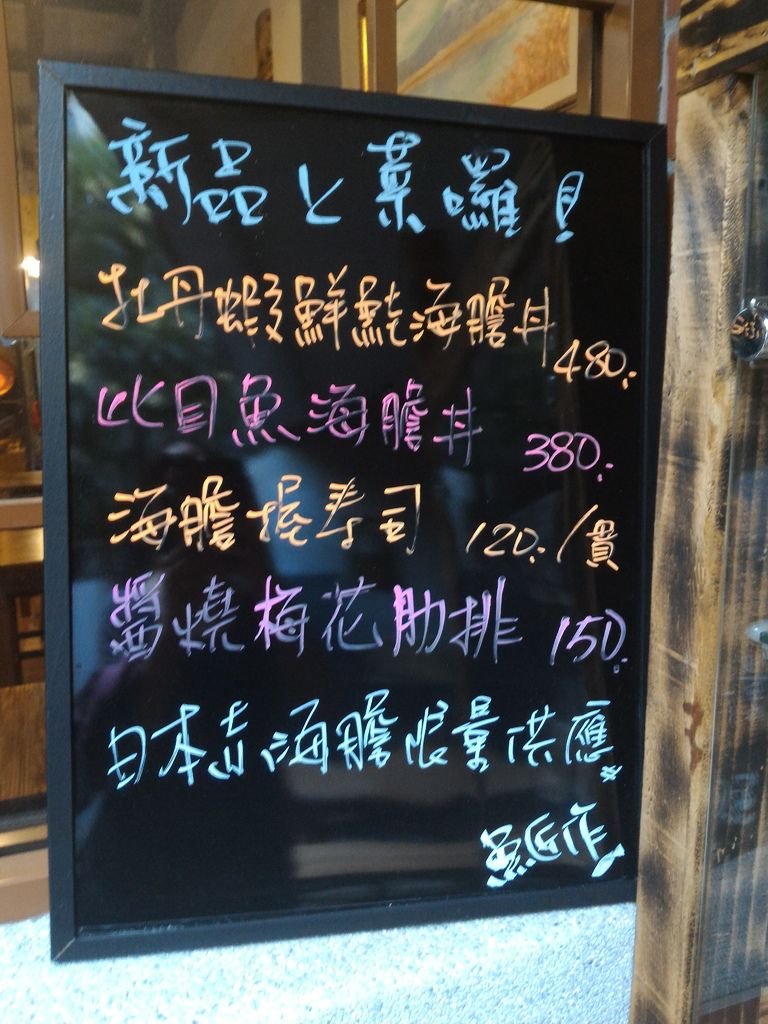 新品上菜囉!
牡丹蝦鮮魨海膽丼 480.
比目魚海膽丼 380.
海膽握寿司 120./貫
醬燒梅花肋排 150.
日本赤海膽限量供應